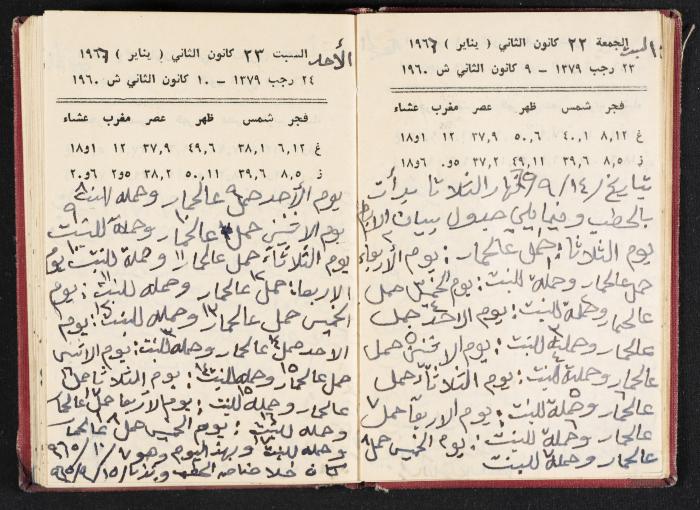 السبت
الجمعة ٢٢ كانون الثاني ( يناير ) ١٩٦٦
٢٣ رجب ١٣٧٩ — ٩ كانون الثاني ش ١٩٦٠
فجر شمس ظهر عصر مغرب عشاء
غ ٨,١٢ ٤٠,١ ٥٠,٦ ٣٧,٩ ١٢ ١و١٨
ز ٨,٥ ٣٩,٦ ٤٩,١١ ٣٧,٢ ٥و٠ ٦و١٨
بتاريخ ١٤/٩/ نهار الثلاثا بدأت
بالحطب وفيما يلي جدول بيان
يوم الثلاثا ١ حمل عالحمار : يوم الأربعاء ٢
حمل عالحمار وحملة للبنت : يوم الخميس ٣ حمل
عالحمار وحملة للبنت : يوم الاحد ٤ حمل
عالحمار وحملة للبنت : يوم الاثنين ٥ حمل
عالحمار وحملة للبنت : يوم الثلاثاء حمل
عالحمار وحملة للبنت : يوم الاربعا حمل ٧
عالحمار وحملة للبنت : يوم الخميس حمل ٨
عالحمار وحملة للبنت
الأحد
السبت ٢٣ كانون الثاني ( يناير ) ١٩٦٦
٢٤ رجب ١٣٧٩ — ١٠ كانون الثاني ش ١٩٦٠
فجر شمس ظهر عصر مغرب عشاء
غ ٦,١٢ ٣٨,١ ٤٩,٦ ٣٧,٩ ١٢ ١و١٨
ز ٨,٥ ٣٩,٦ ٥٠,١١ ٣٨,٢ ٥و٢ ٦و٢٠
يوم الأحد حمل ٩ عالحمار وحملة للبنت ٨
يوم الاثنين حمل عالحمار وحملة للبنت ٩
يوم الثلاثاء حمل عالحمار ١١ وحملة للبنت ١٠ يوم
الاربعا : حمل ١٢ عالحمار وحملة للبنت ١١ : يوم
الخميس حمل عالحمار ١٣ وحملة للبنت : يوم
الاحد حمل ١٤ عالحمار وحملة للبنت ١٣ : يوم الاثنين
حمل عالحمار ١٥ وحملة للبنت ١٤ : يوم الثلاثا حمل ١٦
عالحمار وحملة للبنت ١٥ : يوم الاربعا حمل ١٧ عالحمار
وحملة للبنت ١٦ : يوم الخميس حمل ١٨ عالحمار
وحملة للبنت ١٧ وبهذا اليوم وهو ٧/١٠/٩٦٥
الحطب ١٥/٩/٩٦٥